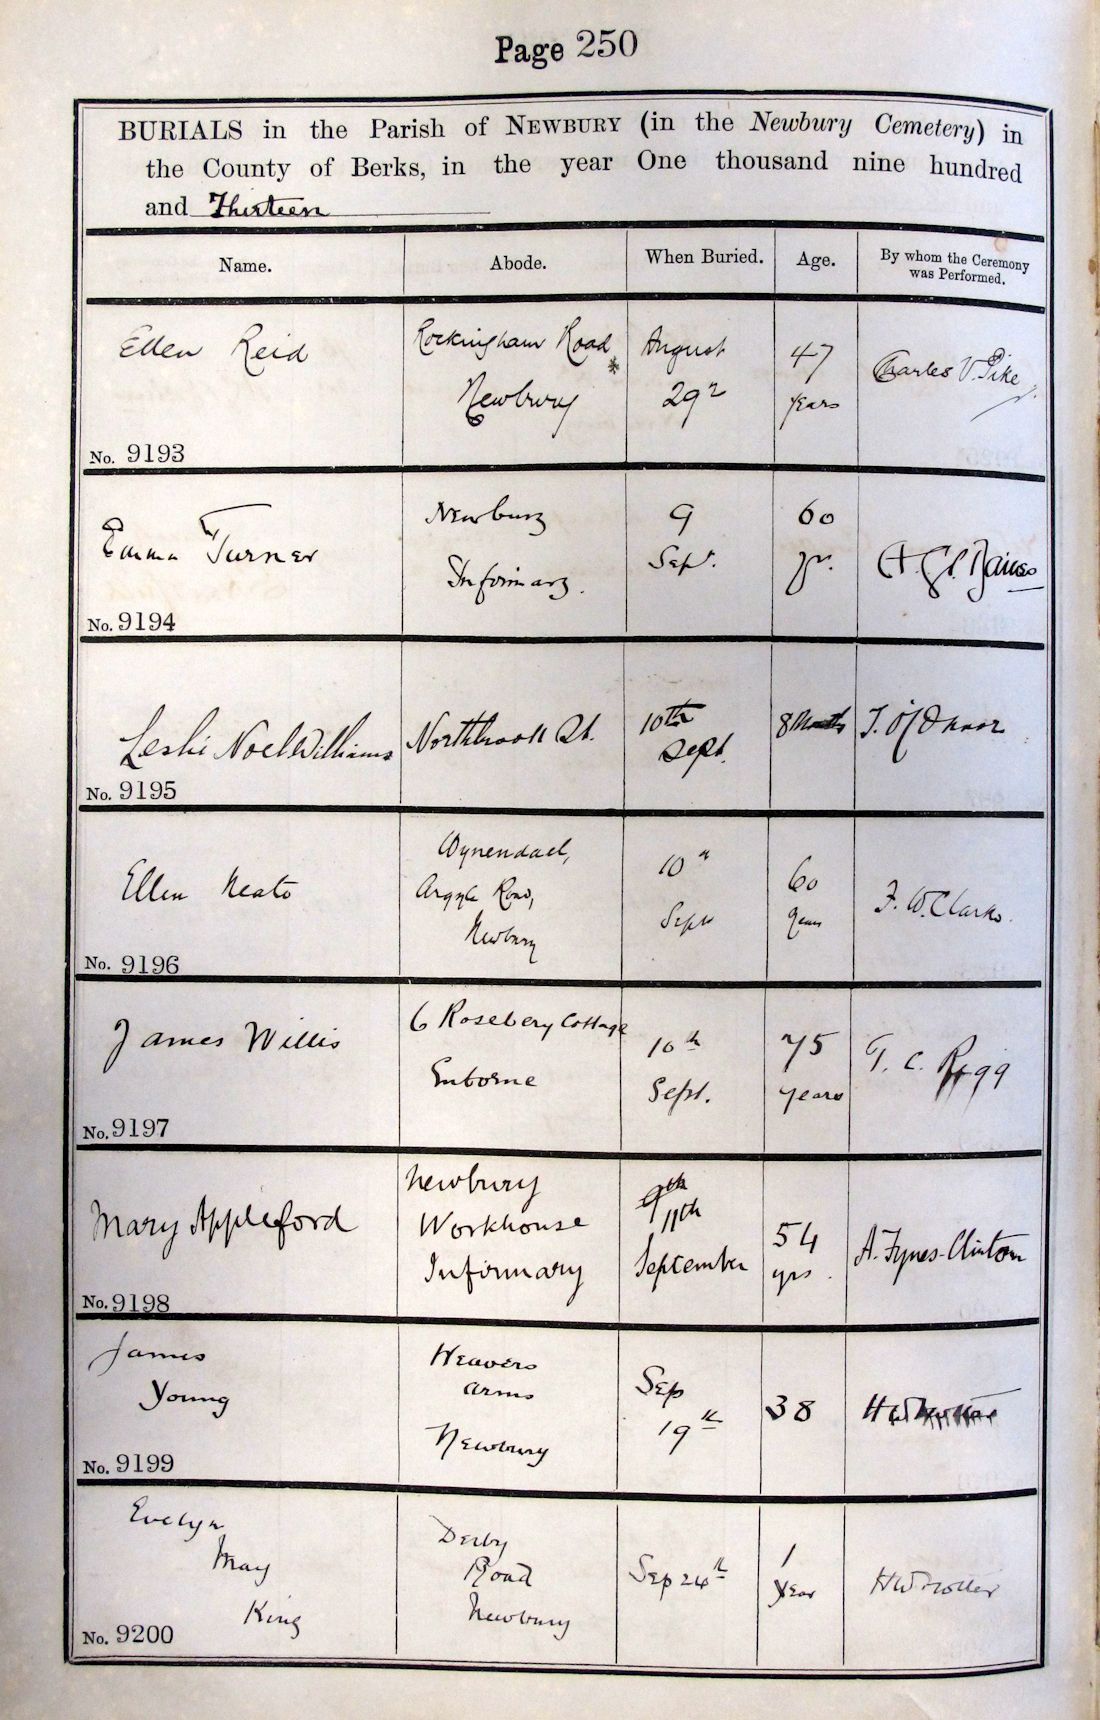 Page 250
BURIALS in the Parish of NEWBURY (in the Newbury Cemetery) in
the County of Berks, in the year One thousand nine hundred
and Thirteen
Name.
Abode.
When Buried.
Age.
By whom the Ceremony
was Performed.
Ellen Reid
No. 9193
Rockingham Road
Newbury
August
29
47
years
Charles V. Pike
Emma Turner
No. 9194
Newbury
Infirmary.
9
Sept.
60
yr.
Leslie Noel Williams
No. 9195
Northbrook St.
10th
Sept.
8 Months
Ellen Neate
No. 9196
Wynendael,
Argyle Road,
Newbury
10th
Sept
60
years
F. W. Clarke.
James Willis
No. 9197
6 Rosebery Cottage
Enborne
10th
Sept.
75
years
T. C. Rigg
Mary Appleford
No. 9198
Newbury
Workhouse
Infirmary
9th
11th
September
54
yrs.
A. Fynes-Clinton
James
Young
No. 9199
Weavers
arms
Newbury
Sep
19th
38
H W Trotter
Evelyn
May
King
No. 9200
Derby
Road
Newbury
Sep 24th
1
Year
H W Trotter